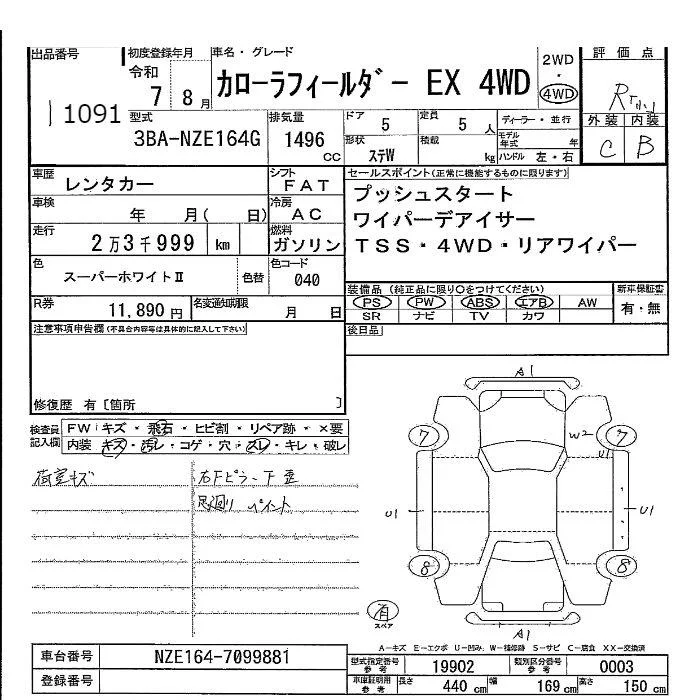 出品番号
1091
初度登録年月
令和
7 8月
車名・グレード
カローラフィールダー EX 4WD
2WD
・
4WD
評価点
R
外装 内装
C B
型式
3BA-NZE164G
排気量
1496
CC
ドア
5
形状
ステW
定員
5人
積載
kg
ディーラー・並行
モデル年式 年
ハンドル 左・右
車歴
レンタカー
シフト
FAT
車検
年 月( 日)
冷房
AC
走行
2万3千999 km
燃料
ガソリン
色
スーパーホワイトⅡ
色替
色コード
040
R券
11,890円
名変通知期限
月 日
セールスポイント(正常に機能するものに限ります)
プッシュスタート
ワイパーデアイサー
TSS・4WD・リアワイパー
装備品 (純正品に限り○をつけてください)
PS PW ABS エアB AW
SR ナビ TV カワ
新車保証書
有・無
後日品
注意事項申告欄(不具合内容等は具体的に記入して下さい)
修復歴 有〔箇所 〕
検査員記入欄
FW:キズ・飛石・ヒビ割・リペア跡・×要
内装 キズ・汚レ・コゲ・穴・スレ・キレ・破レ
荷室キズ
右Fピラー下歪
足廻り ペイント
A1
7
W2
7
U1
U1
U1
8
8
有
スペア
A1
A-キズ E-エクボ U-凹み W-補修跡 S-サビ C-腐食 XX-交換済
車台番号
NZE164-7099881
登録番号
型式指定番号
参考
19902
類別区分番号
参考
0003
車庫証明用
参考
長さ
440cm
幅
169cm
高さ
150cm